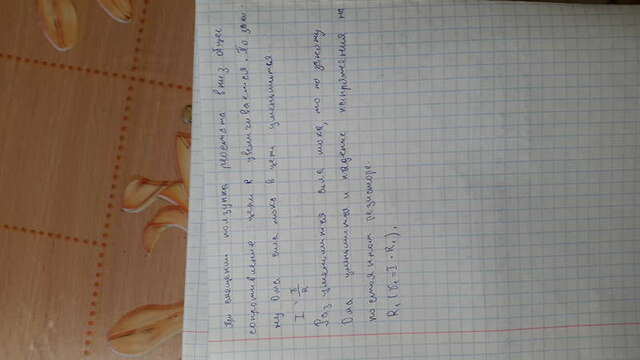 При смещении ползунка реостата вниз общее
сопротивление цепи R увеличивается. По зако-
ну Ома сила тока в цепи уменьшится
I = U/R
Раз уменьшится сила тока, то по закону
Ома уменьшится и падение напряжения на
постоянном резисторе.
R₁ (U₁ = I · R₁),